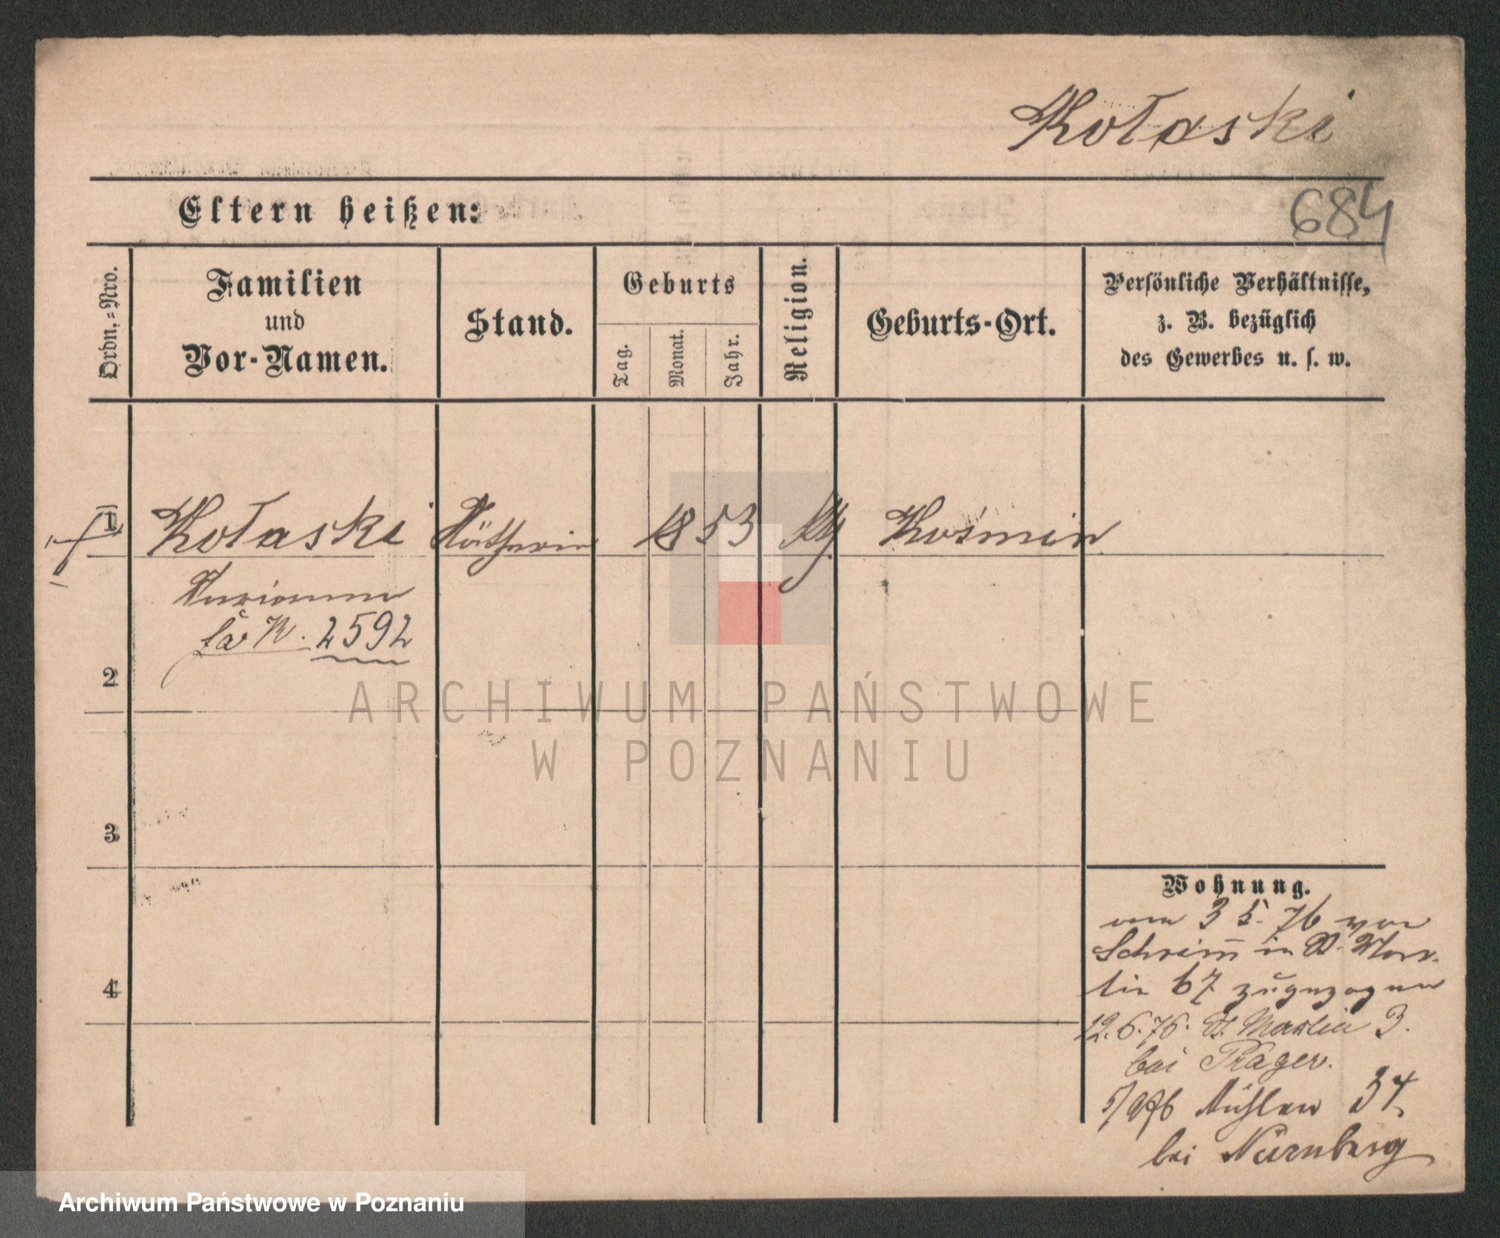 Kołaski
684
Eltern heißen:
Ordn.-Nro.
Familien
und
Vor-Namen.
Stand.
Geburts
Tag.
Monat.
Jahr.
Religion.
Geburts-Ort.
Persönliche Verhältnisse,
z. B. bezüglich
des Gewerbes u. s. w.
1 Kołaski Nätherin 1853 Kośmin
Marianna
2592
2
3
4
Wohnung.
von 3 5. 76 von
Schrimm in St. Mar-
tin 67 zugezogen
12.6.76. St. Martin 3.
bei Prager.
5/9 76 Mühlen 34
bei Nürnberg
ARCHIWUM PAŃSTWOWE
W POZNANIU
Archiwum Państwowe w Poznaniu